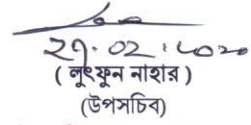 ২৭.০২.২০২০
(লুৎফুন নাহার)
(উপসচিব)